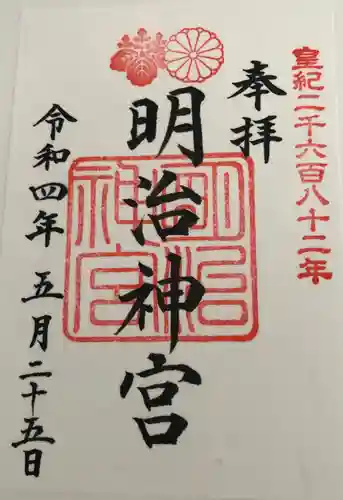 皇紀二千六百八十二年
奉拝
明治神宮
明治神宮
令和四年 五月二十五日